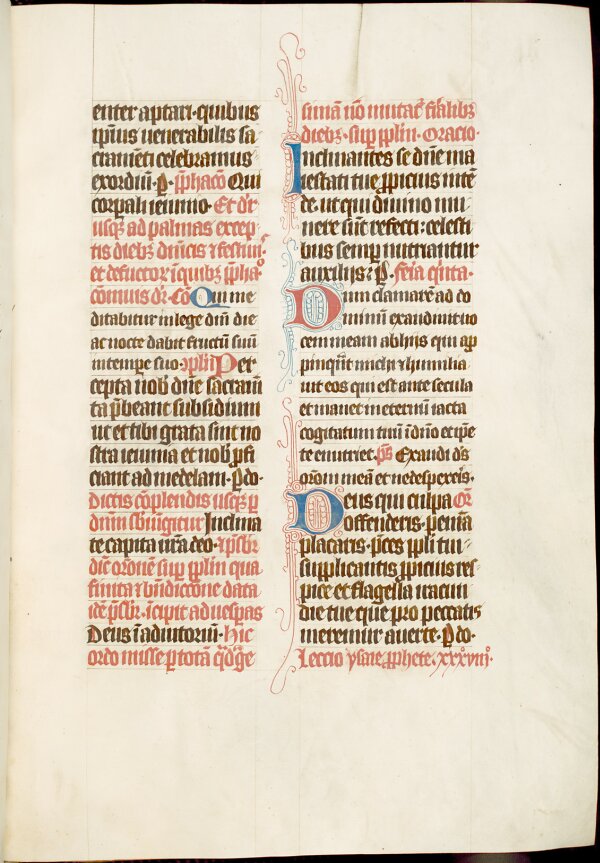 enter aptari· quibus
ip̄ius uenerabilis sa
cramēti celebramus
exordiū· P̲· p̄phacō Qui
corpali ieiunio· Et dr̄
usq̄ ad palmas excep
tis diebꝫ dn̄icis ⁊ festiui⸗
et defūctoꝝ ī quibꝫ p̄pha⸗
cōmuis dr̄· Cō Qui me
ditabitur in lege dn̄i die
ac nocte dabit fructū suū
in tempe suo· 9pln̄ Per
cepta nob̄ dn̄e sacram̄
ta p̄beant subsidium
ut et tibi grata sint no
stra ieiunia et nob̄ ꝓfi
ciant ad medelam· P̲ do·
Dictis cōplendis usq̄ p̲
dn̄m sbiūgitur Inclina
te capita ur̄a deo· 
dic̄ oronē sup̲ ppl̄m qua
finita ⁊ bn̄diccōne data
 īcipit ad uesp̲as
Deus ī adiutoriū· Hic
ordo misse p̲ totā q̄dr̄ge
simā nō mutat̄ fīalibꝫ
diebꝫ· sup̲ ppl̄m· Oracio·
Inclinantes se dn̄e ma
iestati tue ꝓpicius intē
de· ut qui diuino mu
nere sūt refecti: celesti
bus semp̲ nutriantur
auxilijs: P̲· feīa q̇inta·
Dum clamarē ad do
minū exaudiuit uo
cem meam ab hijs qui ap
pinq̄nt michi ⁊ humilia
uit eos qui est ante secula
et manet in eternū iacta
cogitatum tuū ī dn̄o et ip̄e
te enutriet· p̄s Exaudi ds̄
or̄om meā et ne despexeis·
Deus qui culpa Or̄
offenderis· penīa
placaris· p̄ces ppl̄i tui⸗
supplicantis ꝓpicius res⸗
pice et flagella iracun
die tue que pro peccatis
meremur auerte· P̲ do·
Leccio ysaie ꝓphete· xxxviijͦ·